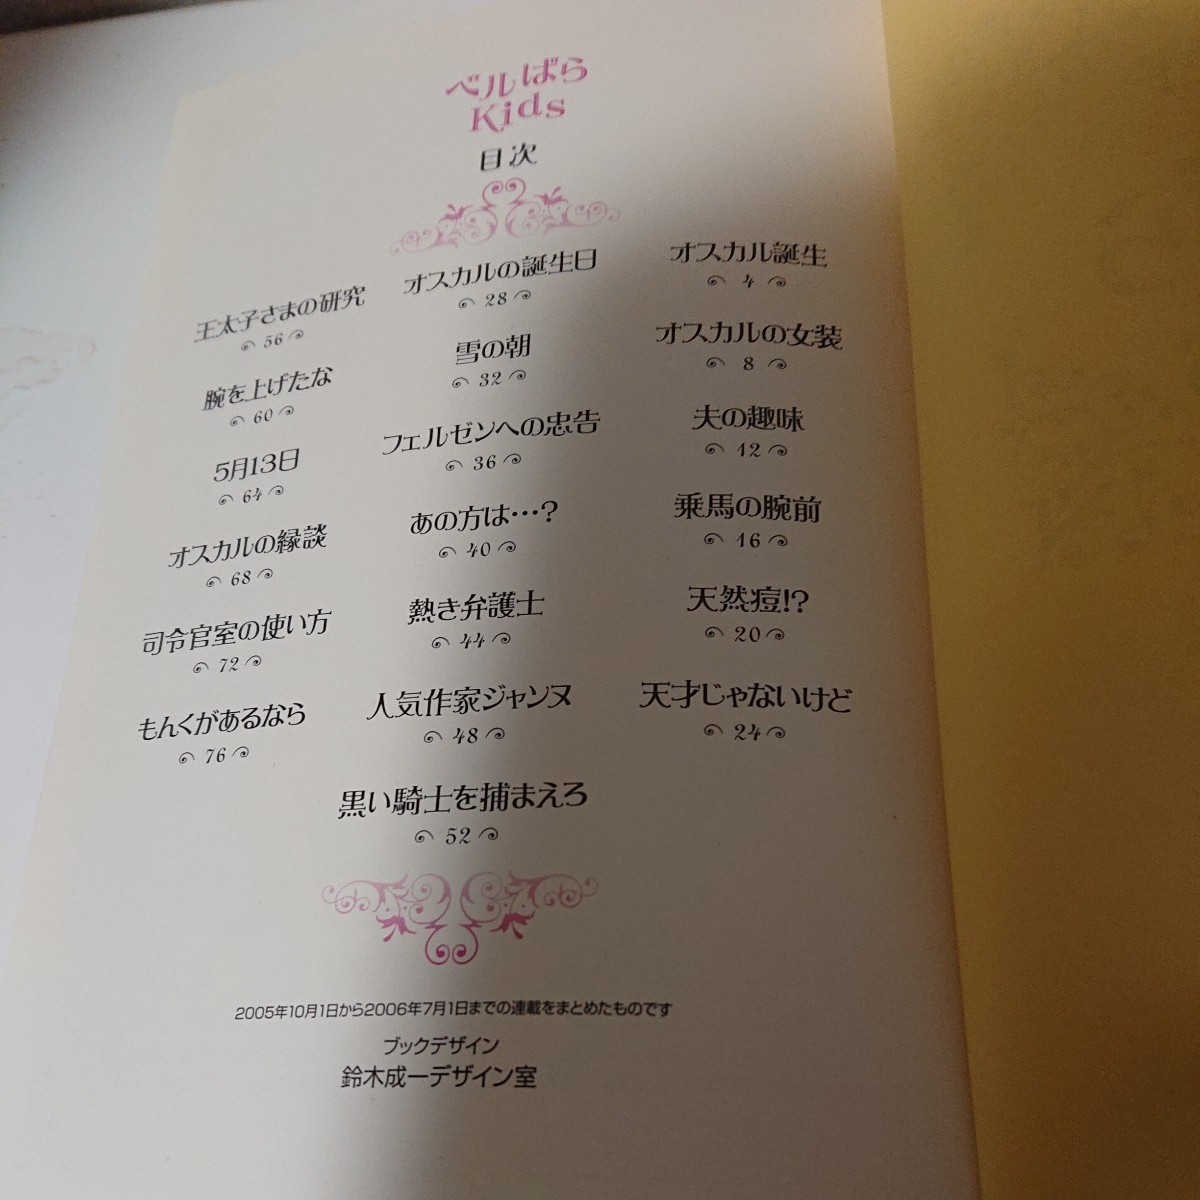 ベルばら
Kids
目次
オスカル誕生
4
オスカルの女装
8
夫の趣味
12
乗馬の腕前
16
天然痘!?
20
天才じゃないけど
24
オスカルの誕生日
28
雪の朝
32
フェルゼンへの忠告
36
あの方は…?
40
熱き弁護士
44
人気作家ジャンヌ
48
黒い騎士を捕まえろ
52
王太子さまの研究
56
腕を上げたな
60
5月13日
64
オスカルの縁談
68
司令官室の使い方
72
もんくがあるなら
76
2005年10月1日から2006年7月1日までの連載をまとめたものです
ブックデザイン
鈴木成一デザイン室